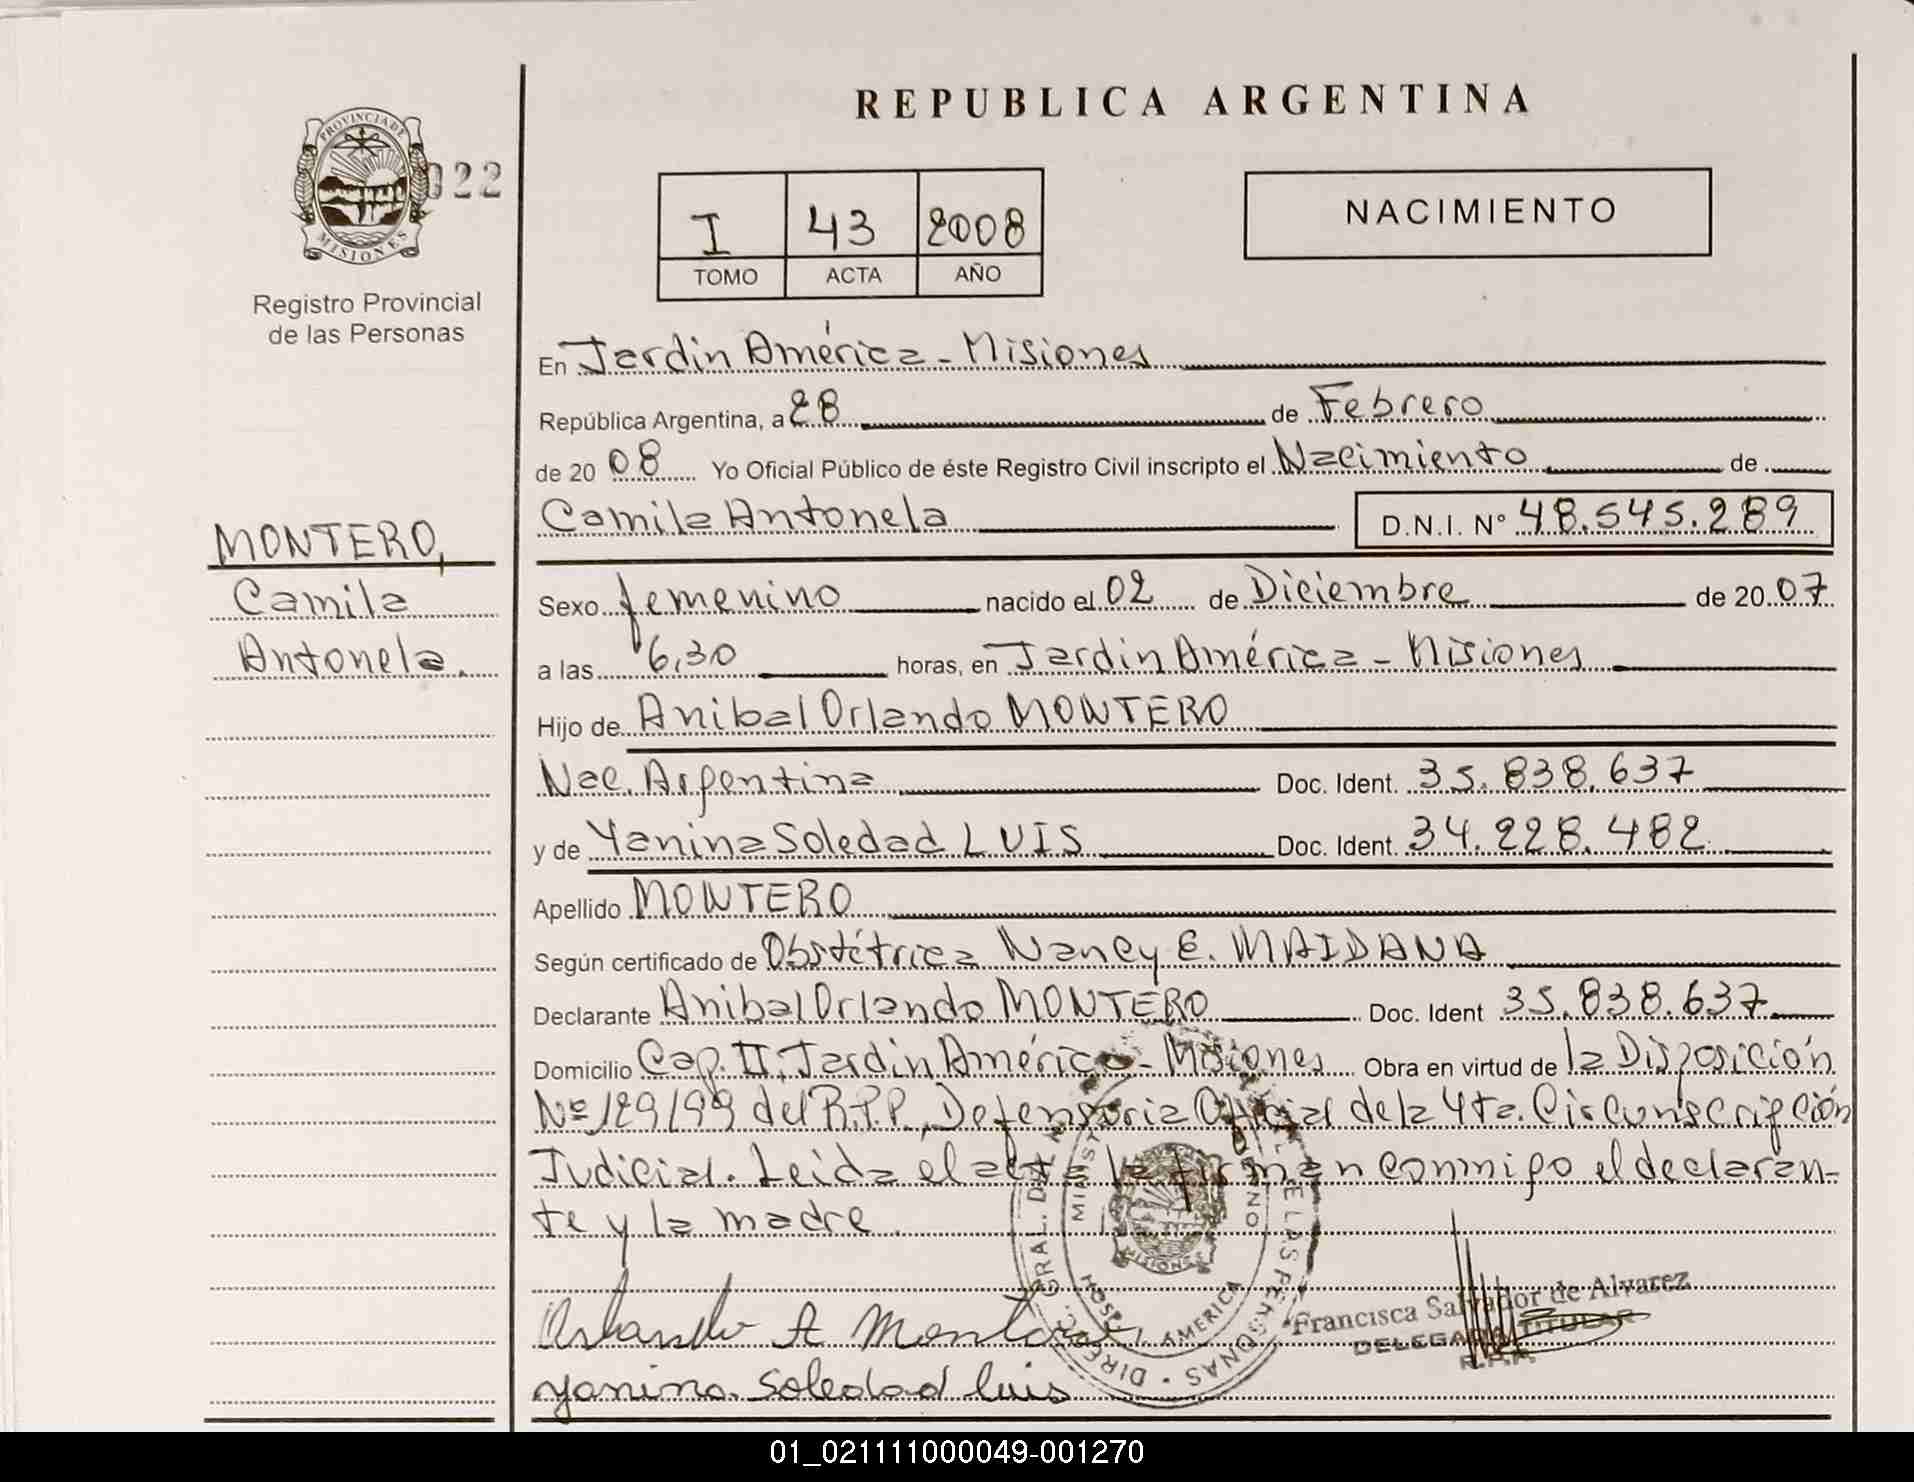 REPUBLICA ARGENTINA
PROVINCIA DE
MISIONES
022
Registro Provincial
de las Personas
I 43 2008
TOMO ACTA AÑO
NACIMIENTO
MONTERO,
Camila
Antonela.
En Jardin América - Misiones
República Argentina, a 28 de Febrero
de 20 08 Yo Oficial Público de éste Registro Civil inscripto el Nacimiento de
Camila Antonela D.N.I. Nº 48.545.289
Sexo femenino nacido el 02 de Diciembre de 20 07
a las 6,30 horas, en Jardin América - Misiones
Hijo de Anibal Orlando MONTERO
Nac. Argentina Doc. Ident. 35.838.637
y de Yanina Soledad LUIS Doc. Ident. 34.228.482
Apellido MONTERO
Según certificado de Obstétrica Nancy E. MAIDANA
Declarante Anibal Orlando MONTERO Doc. Ident 35.838.637
Domicilio Cap. II, Jardin América - Misiones Obra en virtud de la Disposición
Nº 129/99 del R.P.P., Defensoria Oficial de la 4ta. Circunscripción
Judicial. Leida el acta la firman conmigo el declaran-
te y la madre.
Orlando A Montero
yanina Soledad luis
Francisca Salvador de Alvarez
DELEGADA TITULAR
R.P.P.
DIREC. GRAL. DE LAS PERSONAS
MISIONES
AMERICA
01_021111000049-001270